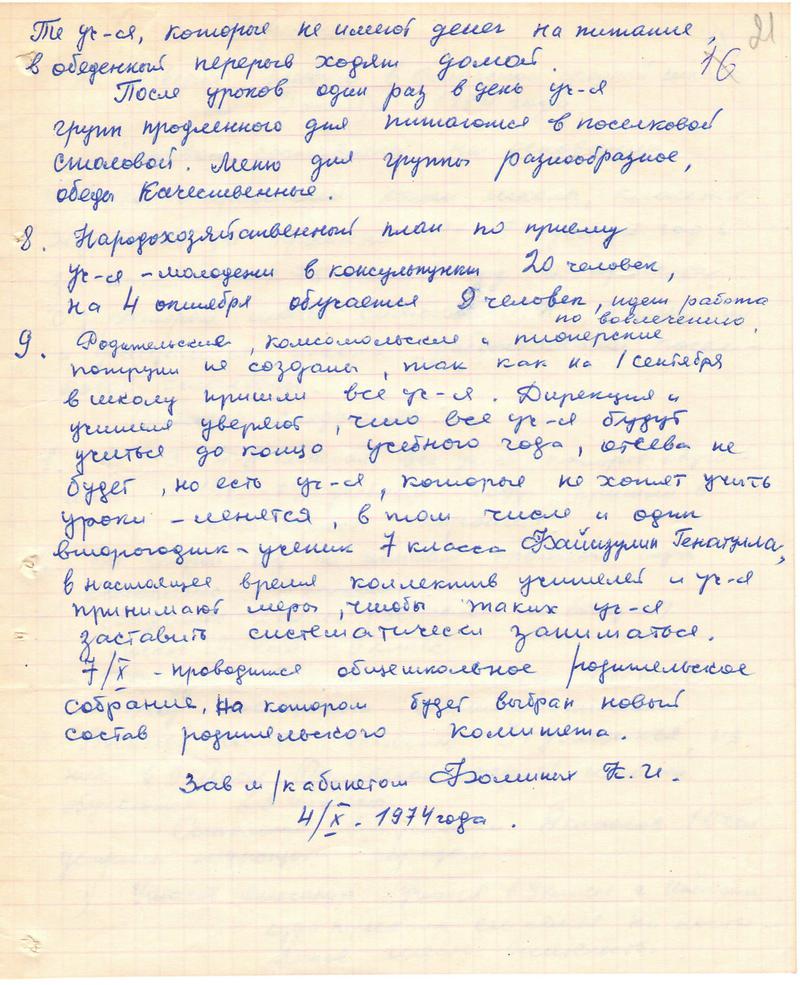 21
16
Те уч-ся, которые не имеют денег на питание,
в обеденный перерыв ходят домой.
После уроков один раз в день уч-ся
групп продленного дня питаются в поселковой
столовой. Меню для группы разнообразное,
обеды качественные.
8. Народохозяйственный план по приему
уч-ся - молодежи в консультпункт 20 человек,
на 4 октября обучается 9 человек, идет работа
по вовлечению.
9. Родительские, комсомольские и пионерские
патрули не созданы, так как на 1 сентября
в школу пришли все уч-ся. Дирекция и
учителя уверяют, что все уч-ся будут
учиться до конца учебного года, отсева не
будет, но есть уч-ся, которые не хотят учить
уроки - ленятся, в том числе и один
второгодник - ученик 7 класса Файзулин Генатулла,
в настоящее время коллектив учителей и уч-ся
принимают меры, чтобы таких уч-ся
заставить систематически заниматься.
7/X - проводится общешкольное родительское
собрание, на котором будет выбран новый
состав родительского комитета.
Зав м/кабинетом Фоминых К.И.
4/X - 1974 года.